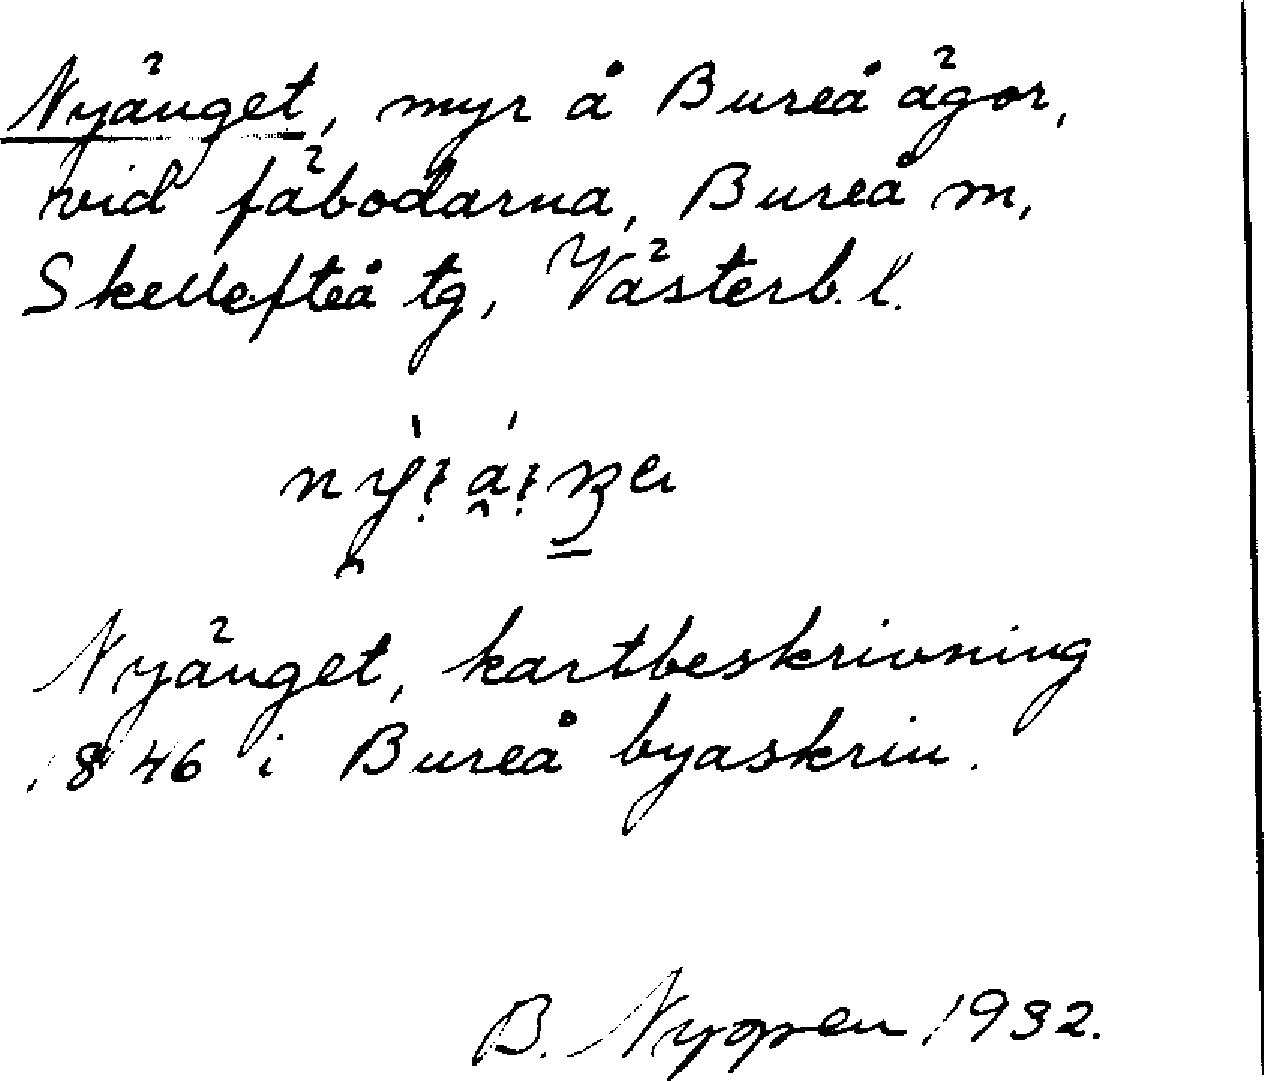 Nyänget, myr å Bureå ägor,
vid fäbodarna, Bureå m,
Skellefteå tg, Västerb. l.
Nyänget, kartbeskrivning
1846 i Bureå byaskrin.
B. Nyopen 1932.